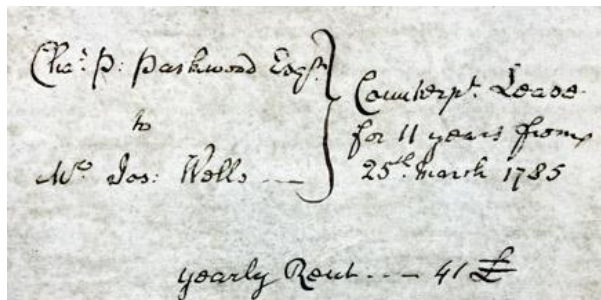 Chas. P: Pashwood Esqr.
to
Mr. Jos: Wells
Counterpt. Lease
for 11 years from
25th. March 1785
yearly Rent ... 41 £